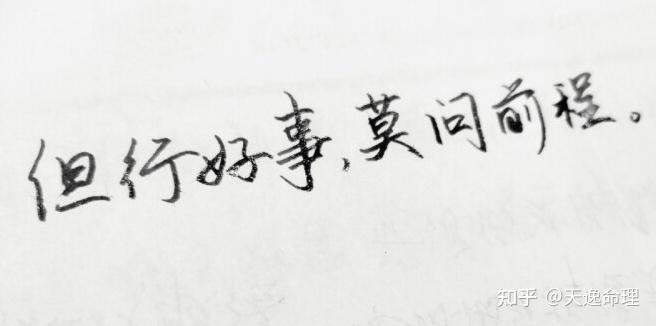 但行好事,莫问前程。
知乎 @天逸命理